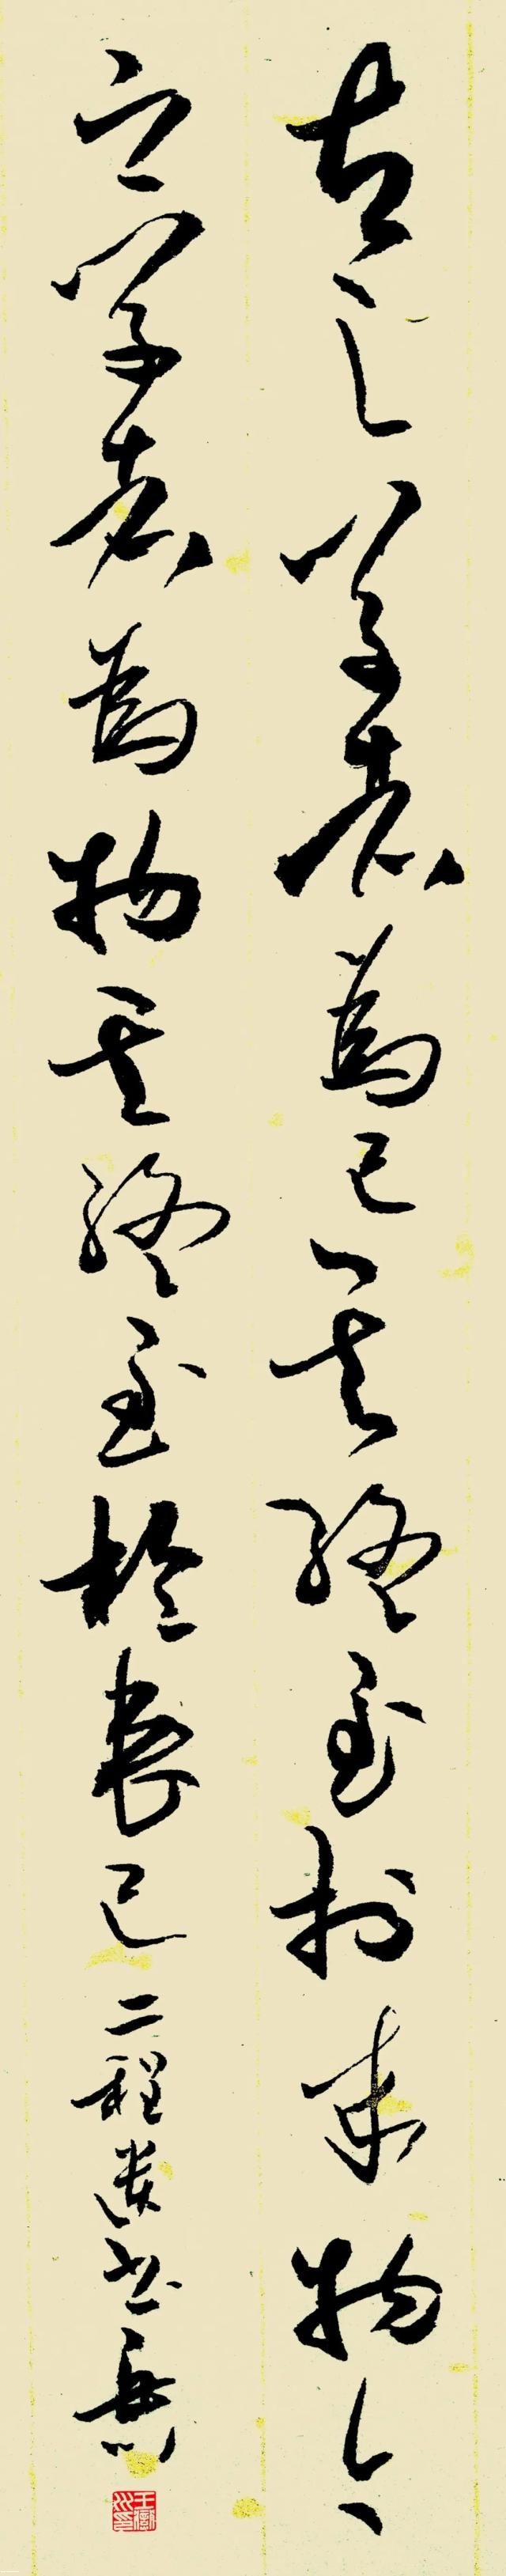 古之學者為己其終至於成物今
之學者為物其終至於喪己 二程遺書